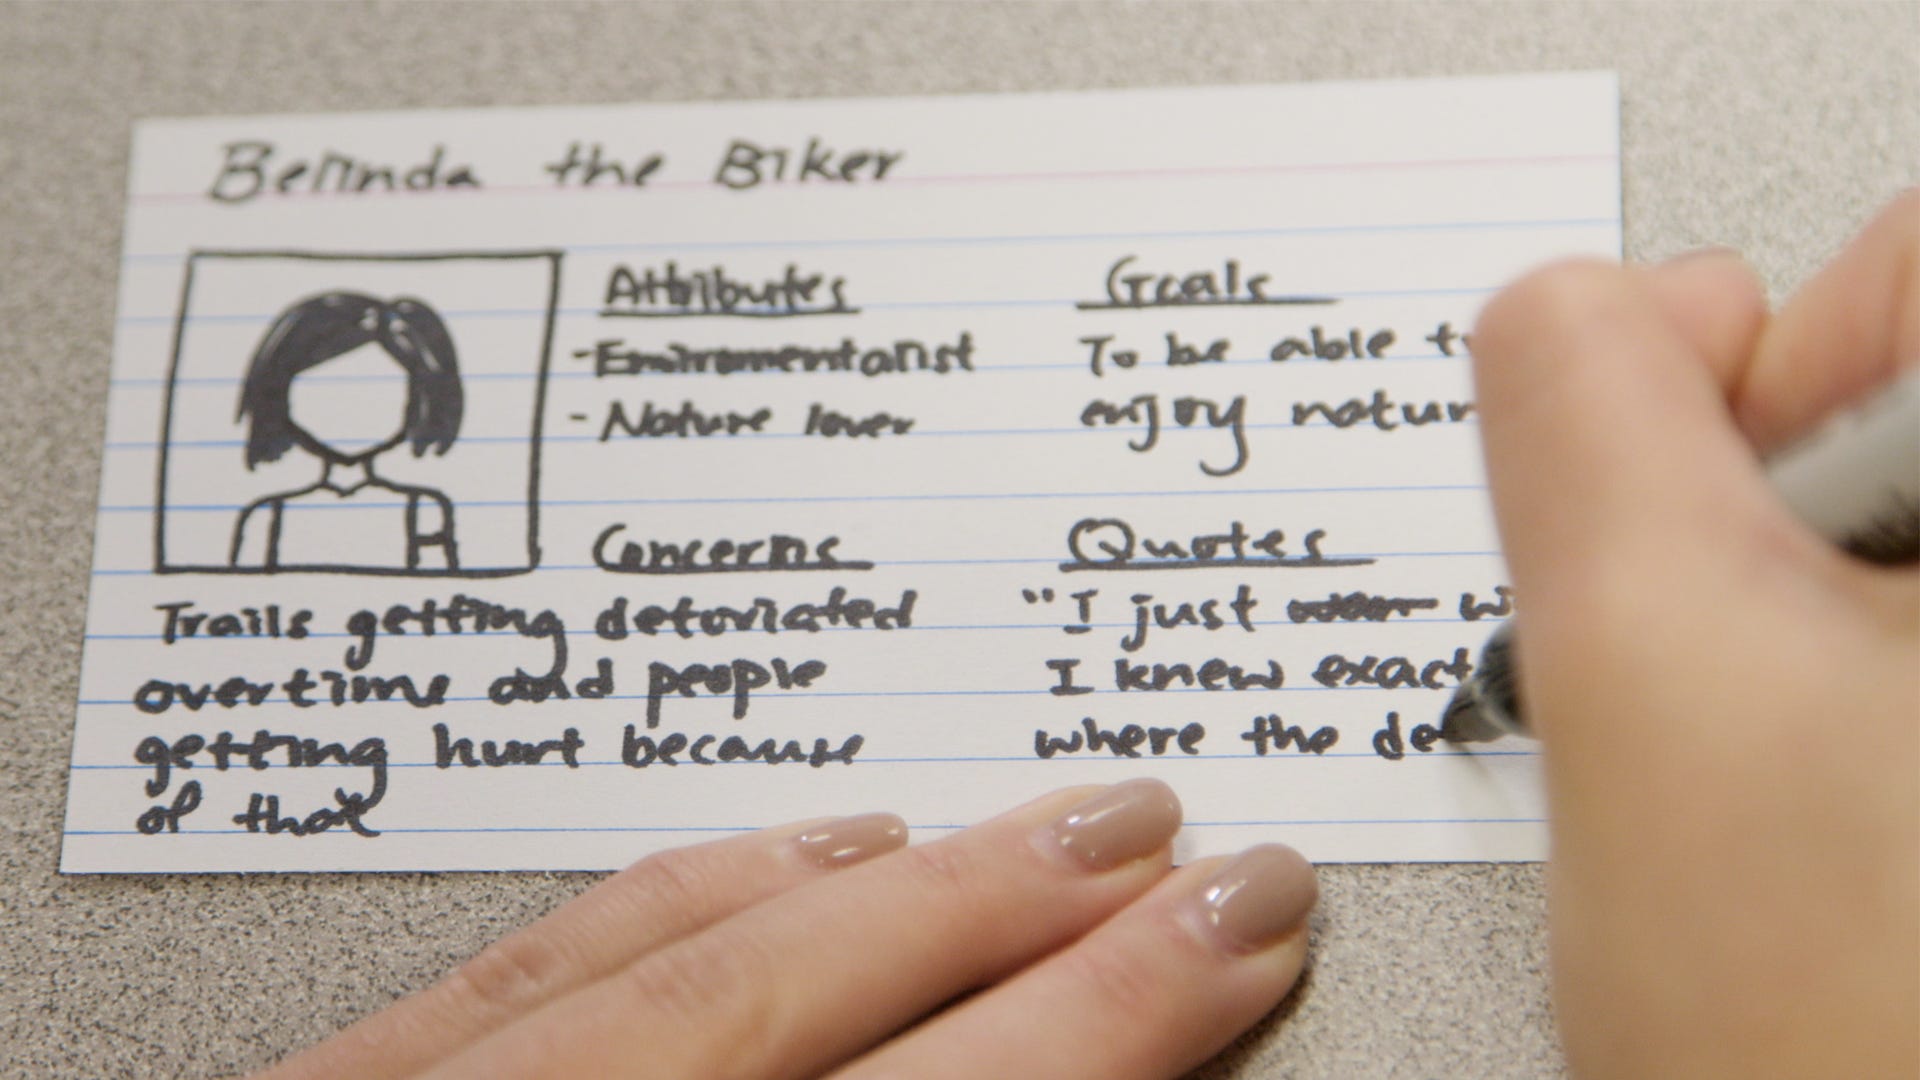 Belinda the Biker
Attributes
-Enviromentalist
- Nature lover
Goals
To be able
enjoy
Concerns
Trails getting detoriated
overtime and people
getting hurt because
of that
Quotes
"I just
I knew
where the